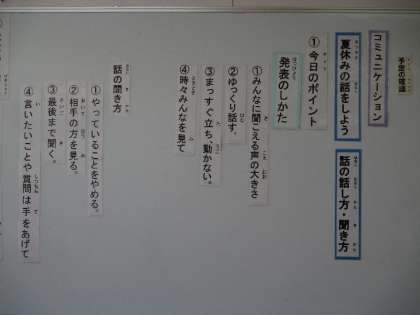 予定の確認
コミュニケーション
夏休みの話をしよう
話の話し方・聞き方
①今日のポイント
発表のしかた
①みんなに聞こえる声の大きさ
②ゆっくり話す。
③まっすぐ立ち、動かない。
④時々みんなを見て
話の聞き方
①やっていることをやめる。
②相手の方を見る。
③最後まで聞く。
④言いたいことや質問は手をあげて